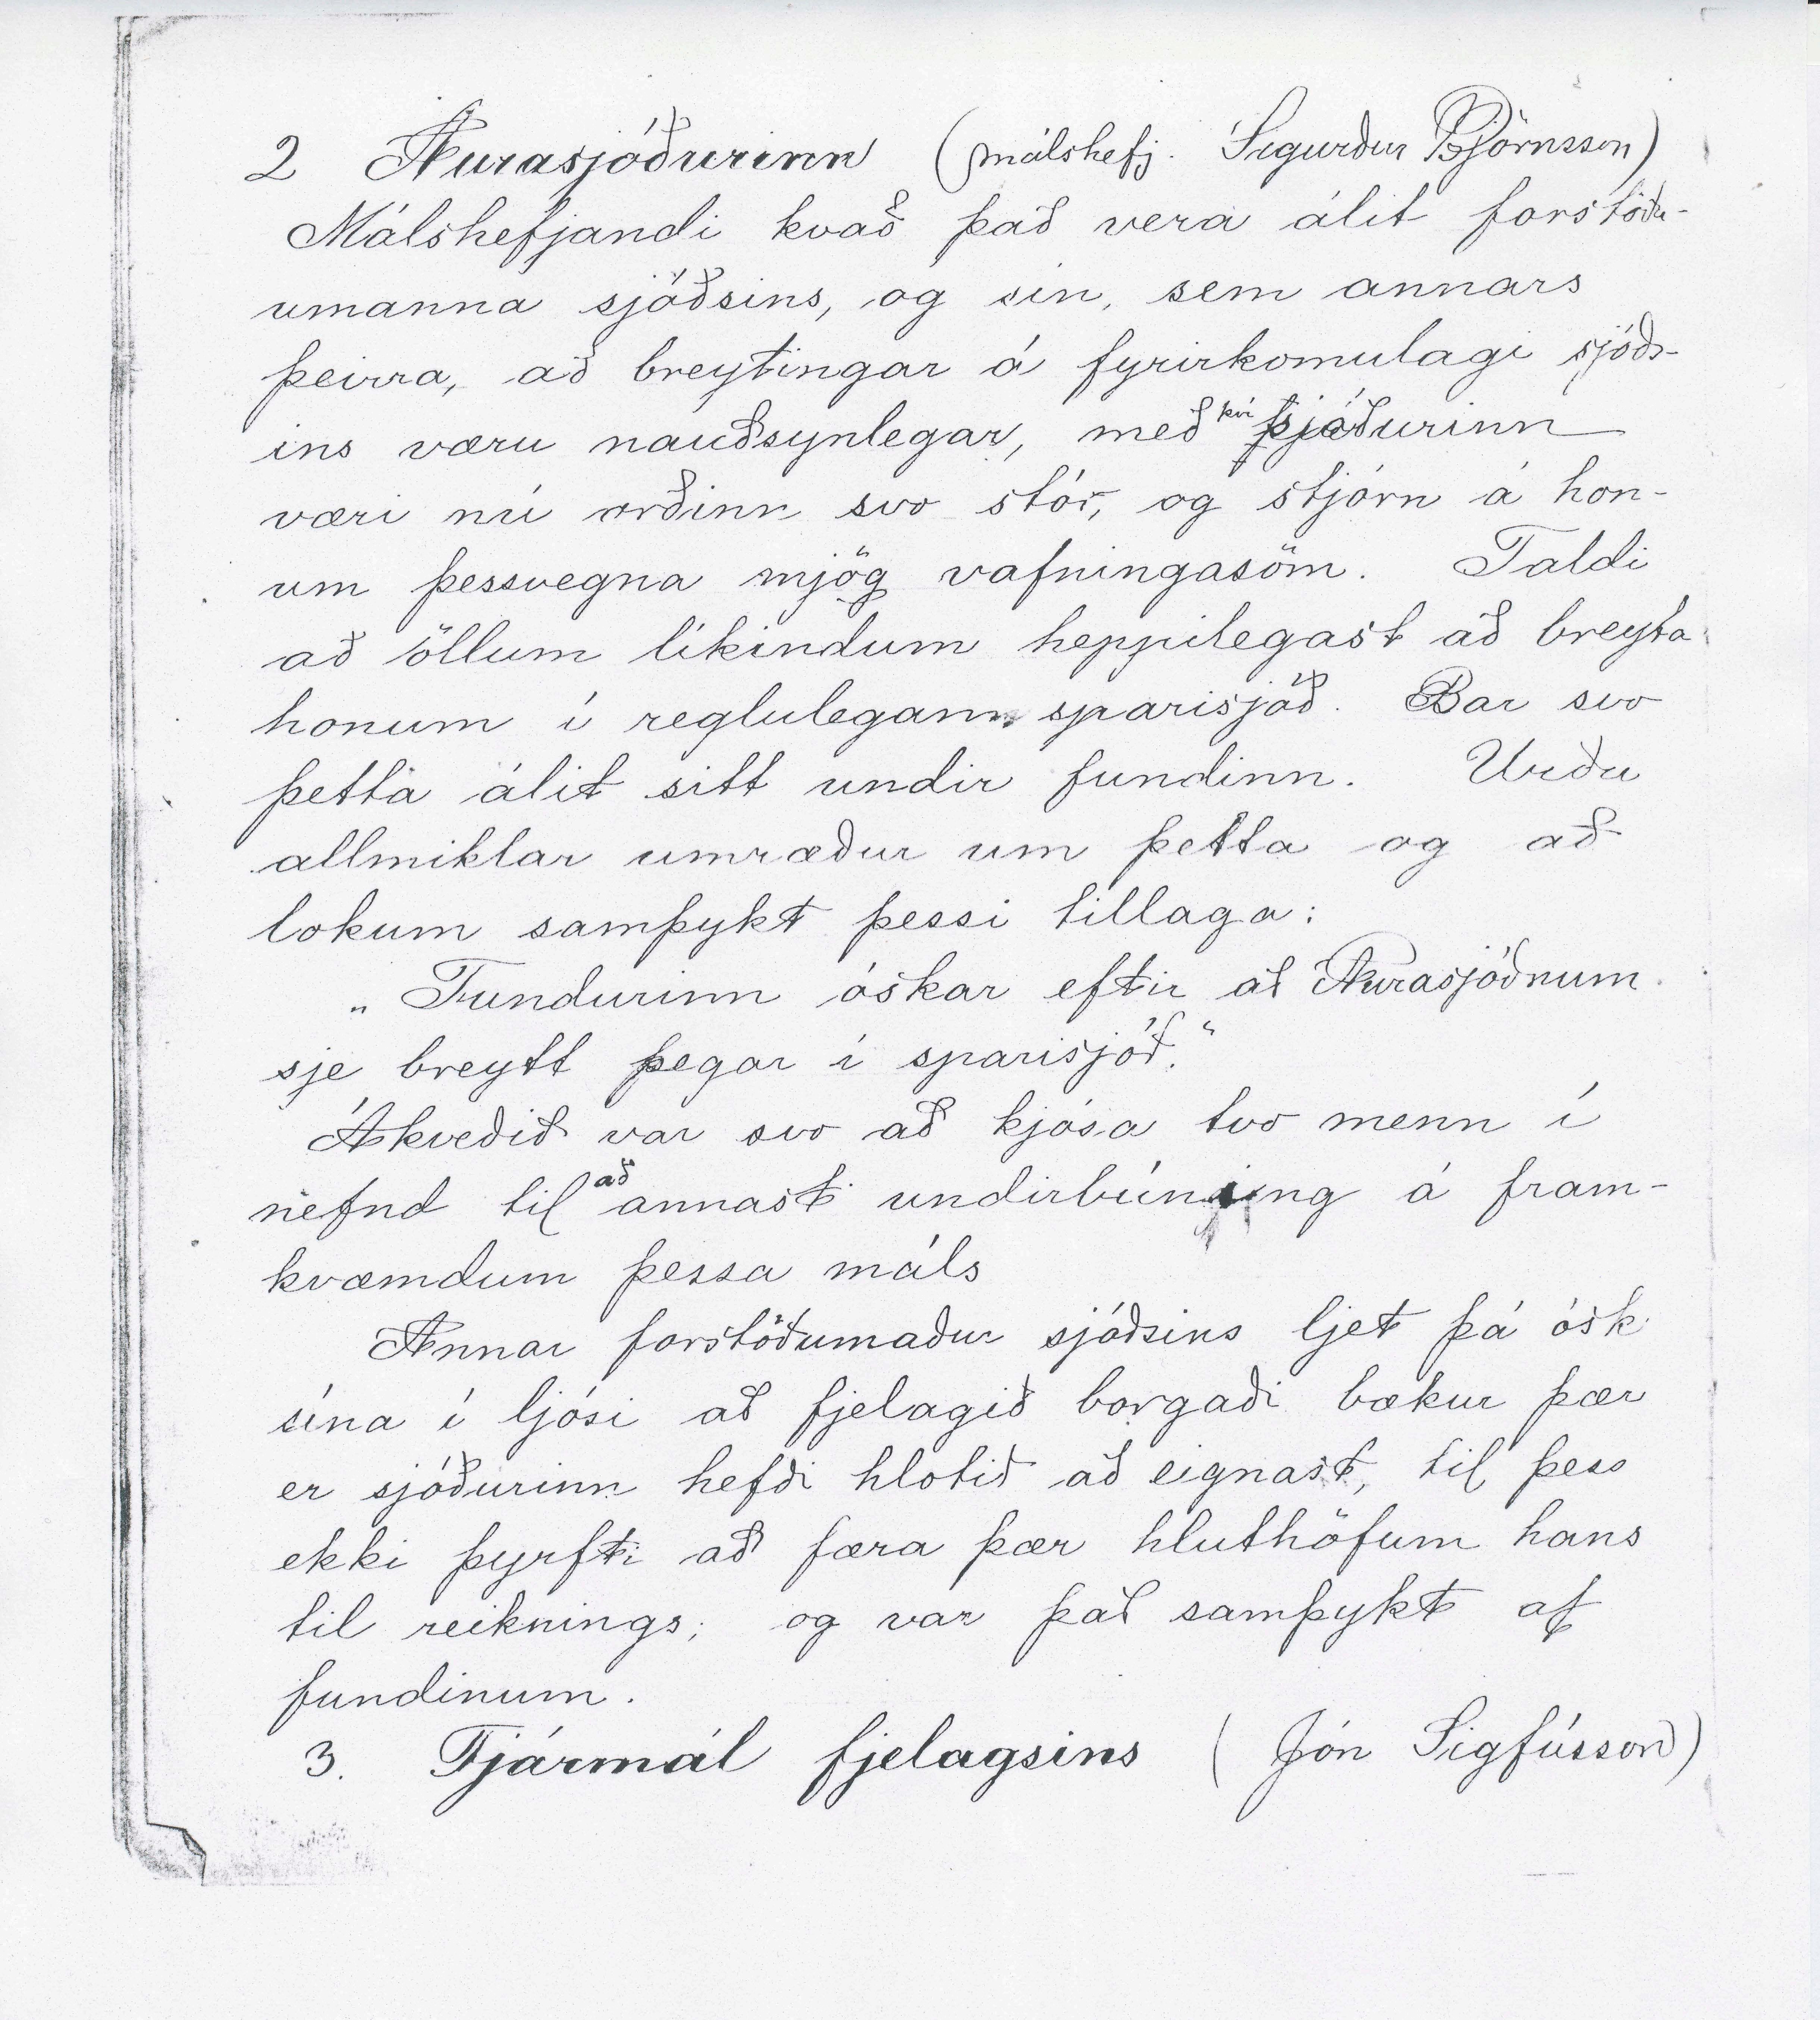 2 Aurasjóðurinn (málshefj. Sigurður Björnsson)
Málshefjandi kvað það vera álit forstöðu-
umanna sjóðsins, og sín, sem annars
þeirra, að breytingar á fyrirkomulagi sjóðs-
ins væru nauðsynlegar, með því sjóðurinn
væri nú orðinn svo stór, og stjórn á hon-
um þessvegna mjög vafningasöm. Taldi
að öllum líkindum heppilegast að breyta
honum í reglulegann sparisjóð. Bar svo
þetta álit sitt undir fundinn. Urðu
allmiklar umræður um þetta og að
lokum samþykt þessi tillaga:
„Fundurinn óskar eftir að Aurasjóðnum
sje breytt þegar í sparisjóð."
Ákveðið var svo að kjósa tvo menn í
nefnd til að annast undirbúning á fram-
kvæmdum þessa máls
Annar forstöðumaður sjóðsins ljet þá ósk
sína í ljósi að fjelagið borgaði bækur þær
er sjóðurinn hefði hlotið að eignast, til þess
ekki þyrfti að færa þær hluthöfum hans
til reiknings; og var það samþykt af
fundinum.
3. Fjármál fjelagsins (Jón Sigfússon)